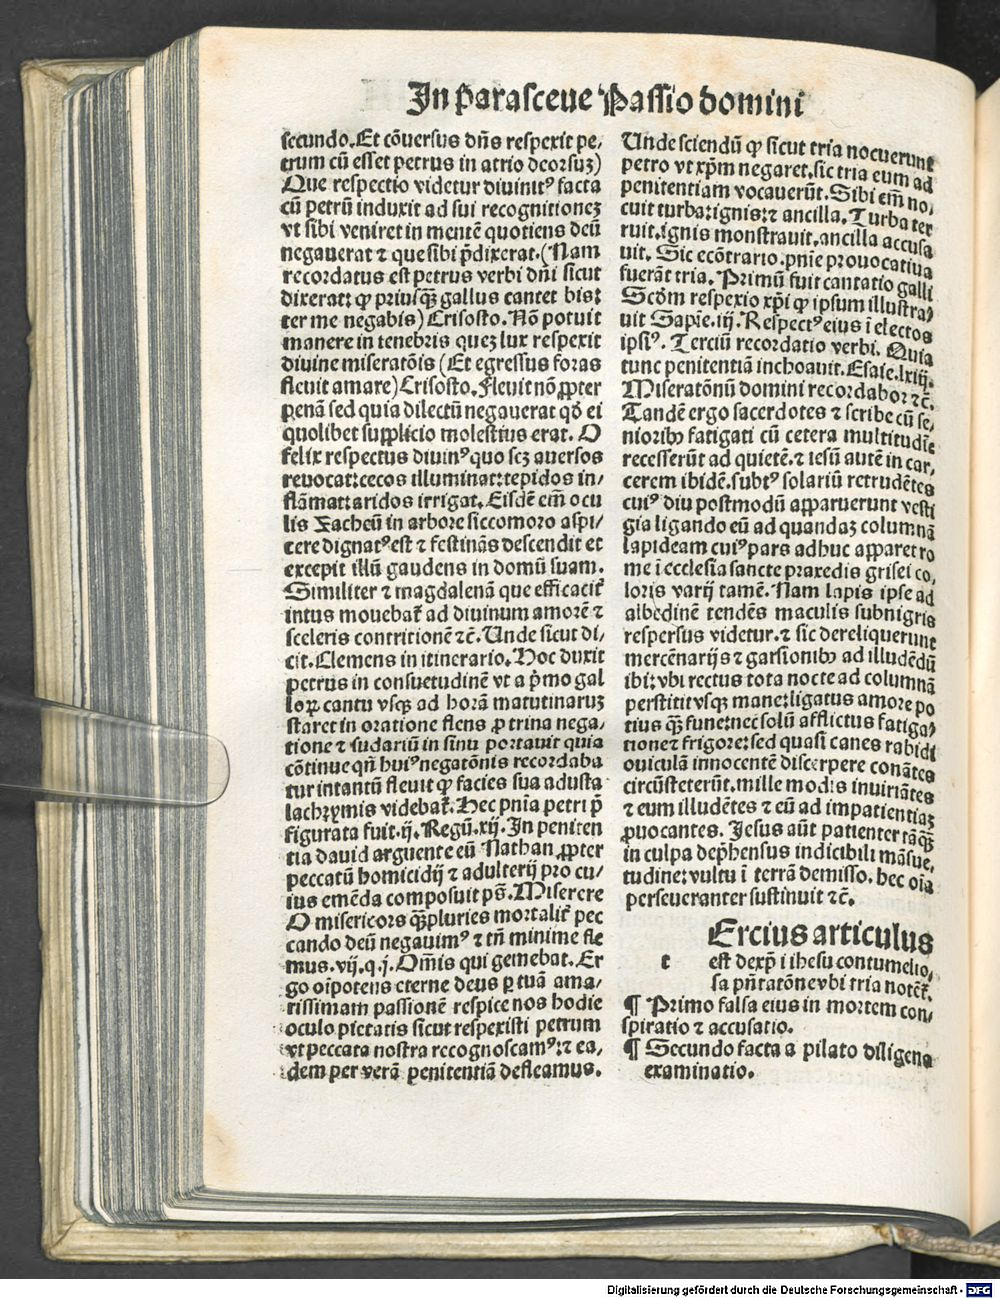 In parasceue Passio domini
secundo. Et cōuersus dñs respexit pe,
trum cū esset petrus in atrio deorsuȝ)
Que respectio videtur diuinitꝰ facta
cū petrū induxit ad sui recognitioneȝ
vt sibi veniret in mentē quotiens deū
negauerat ⁊ que sibi p̄dixerat. (Nam
recordatus est petrus verbi dn̄i sicut
dixerat: ꝙ priusq̄ȝ gallus cantet bis:
ter me negabis) Crisosto. Nō potuit
manere in tenebris queȝ lux respexit
diuine miseratōnis (Et egressus foras
fleuit amare) Crisosto. Fleuit nō ꝓpter
penā sed quia dilectū negauerat qđ ei
quolibet supplicio molestius erat. O
felix respectus diuinꝰ quo scȝ auersos
reuocat: cecos illuminat: tepidos in/
flāmat: aridos irrigat. Eisdē em̄ ocu
lis Zacheū in arbore siccomoro aspi/
cere dignatꝰ est ⁊ festinās descendit et
excepit illū gaudens in domū suam.
Similiter ⁊ magdalenā que efficacit̄
intus mouebat̄ ad diuinum amorē ⁊
sceleris contritionē ⁊c̄. Unde sicut di/
cit. Clemens in itinerario. Hoc duxit
petrus in consuetudinē vt a p̄mo gal
loꝝ cantu vsqȝ ad horā matutinaruȝ
staret in oratione flens ꝓ trina nega/
tione ⁊ sudariū in sinu portauit quia
cōtinue qn̄ huiꝰ negatōnis recordaba
tur intantū fleuit ꝙ facies sua adusta
lachrymis videbat̄. Hec pn̄ia petri p̄
figurata fuit. ij. Regū. xij. In peniten
tia dauid arguente eū Nathan ꝓpter
peccatū homicidij ⁊ adulterij pro cu/
ius emēda composuit ps̄. Miserere
O misericors q̄ȝ pluries mortalit̄ pec
cando deū negauimꝰ ⁊ tn̄ minime fle
mus. vij. q. j. Om̄is qui gemebat. Er
go oīpotens eterne deus ꝑ tuā ama/
rissimam passionē respice nos hodie
oculo pietatis sicut respexisti petrum
vt peccata nostra recognoscamꝰ: ⁊ ea/
dem per verā penitentiā defleamus.
Unde sciendū ꝙ sicut tria nocuerunt
petro vt xp̄m negaret. sic tria eum ad
penitentiam vocauerūt. Sibi em̄ no/
cuit turba: ignis: ⁊ ancilla. Turba ter
ruit. ignis monstrauit. ancilla accusa
uit. Sic ecōtrario. pn̄ie prouocatiua
fuerāt tria. Primū fuit cantatio galli
Scd̄m respexio xp̄i ꝙ ipsum illustra/
uit Sapie. iij. Respectꝰ eius ī electos
ipsiꝰ. Terciū recordatio verbi. Quia
tunc penitentiā inchoauit. Esaie. lxiij.
Miseratōnū domini recordabor ⁊c̄.
Tandē ergo sacerdotes ⁊ scribe cū se/
nioribꝫ fatigati cū cetera multitudīe
recesserūt ad quietē. ⁊ iesū autē in car/
cerem ibidē. subtꝰ solariū retrudētes
cuiꝰ diu postmodū apparuerunt vesti
gia ligando eū ad quandaȝ columnā
lapideam cuiꝰ pars adhuc apparet ro
me ī ecclesia sancte praxedis grisei co/
loris varij tamē. Nam lapis ipse ad
albedinē tendēs maculis subnigris
respersus videtur. ⁊ sic dereliquerunt
mercēnarijs ⁊ garsionibꝫ ad illudēdū
ibi: vbi rectus tota nocte ad columnā
perstitit vsqȝ mane: ligatus amore po
tius q̄ȝ fune: nec solū afflictus fatiga/
tione ⁊ frigore: sed quasi canes rabidi
ouiculā innocentē discerpere conātes
circūsteterūt. mille modis iniuriātes
⁊ eum illudētes ⁊ eū ad impatientiaȝ
ꝓuocantes. Jesus aūt patienter tāq̄ȝ
in culpa dep̄hensus indicibili māsue/
tudine: vultu ī terrā demisso. hec oīa
perseueranter sustinuit ⁊c̄.
Ercius articulus
t est de xp̄i ihesu contumelio/
sa pn̄tatōne vbi tria notēt̄.
¶ Primo falsa eius in mortem con/
spiratio ⁊ accusatio.
¶ Secundo facta a pilato diligens
examinatio.
Digitalisierung gefördert durch die Deutsche Forschungsgemeinschaft - DFG